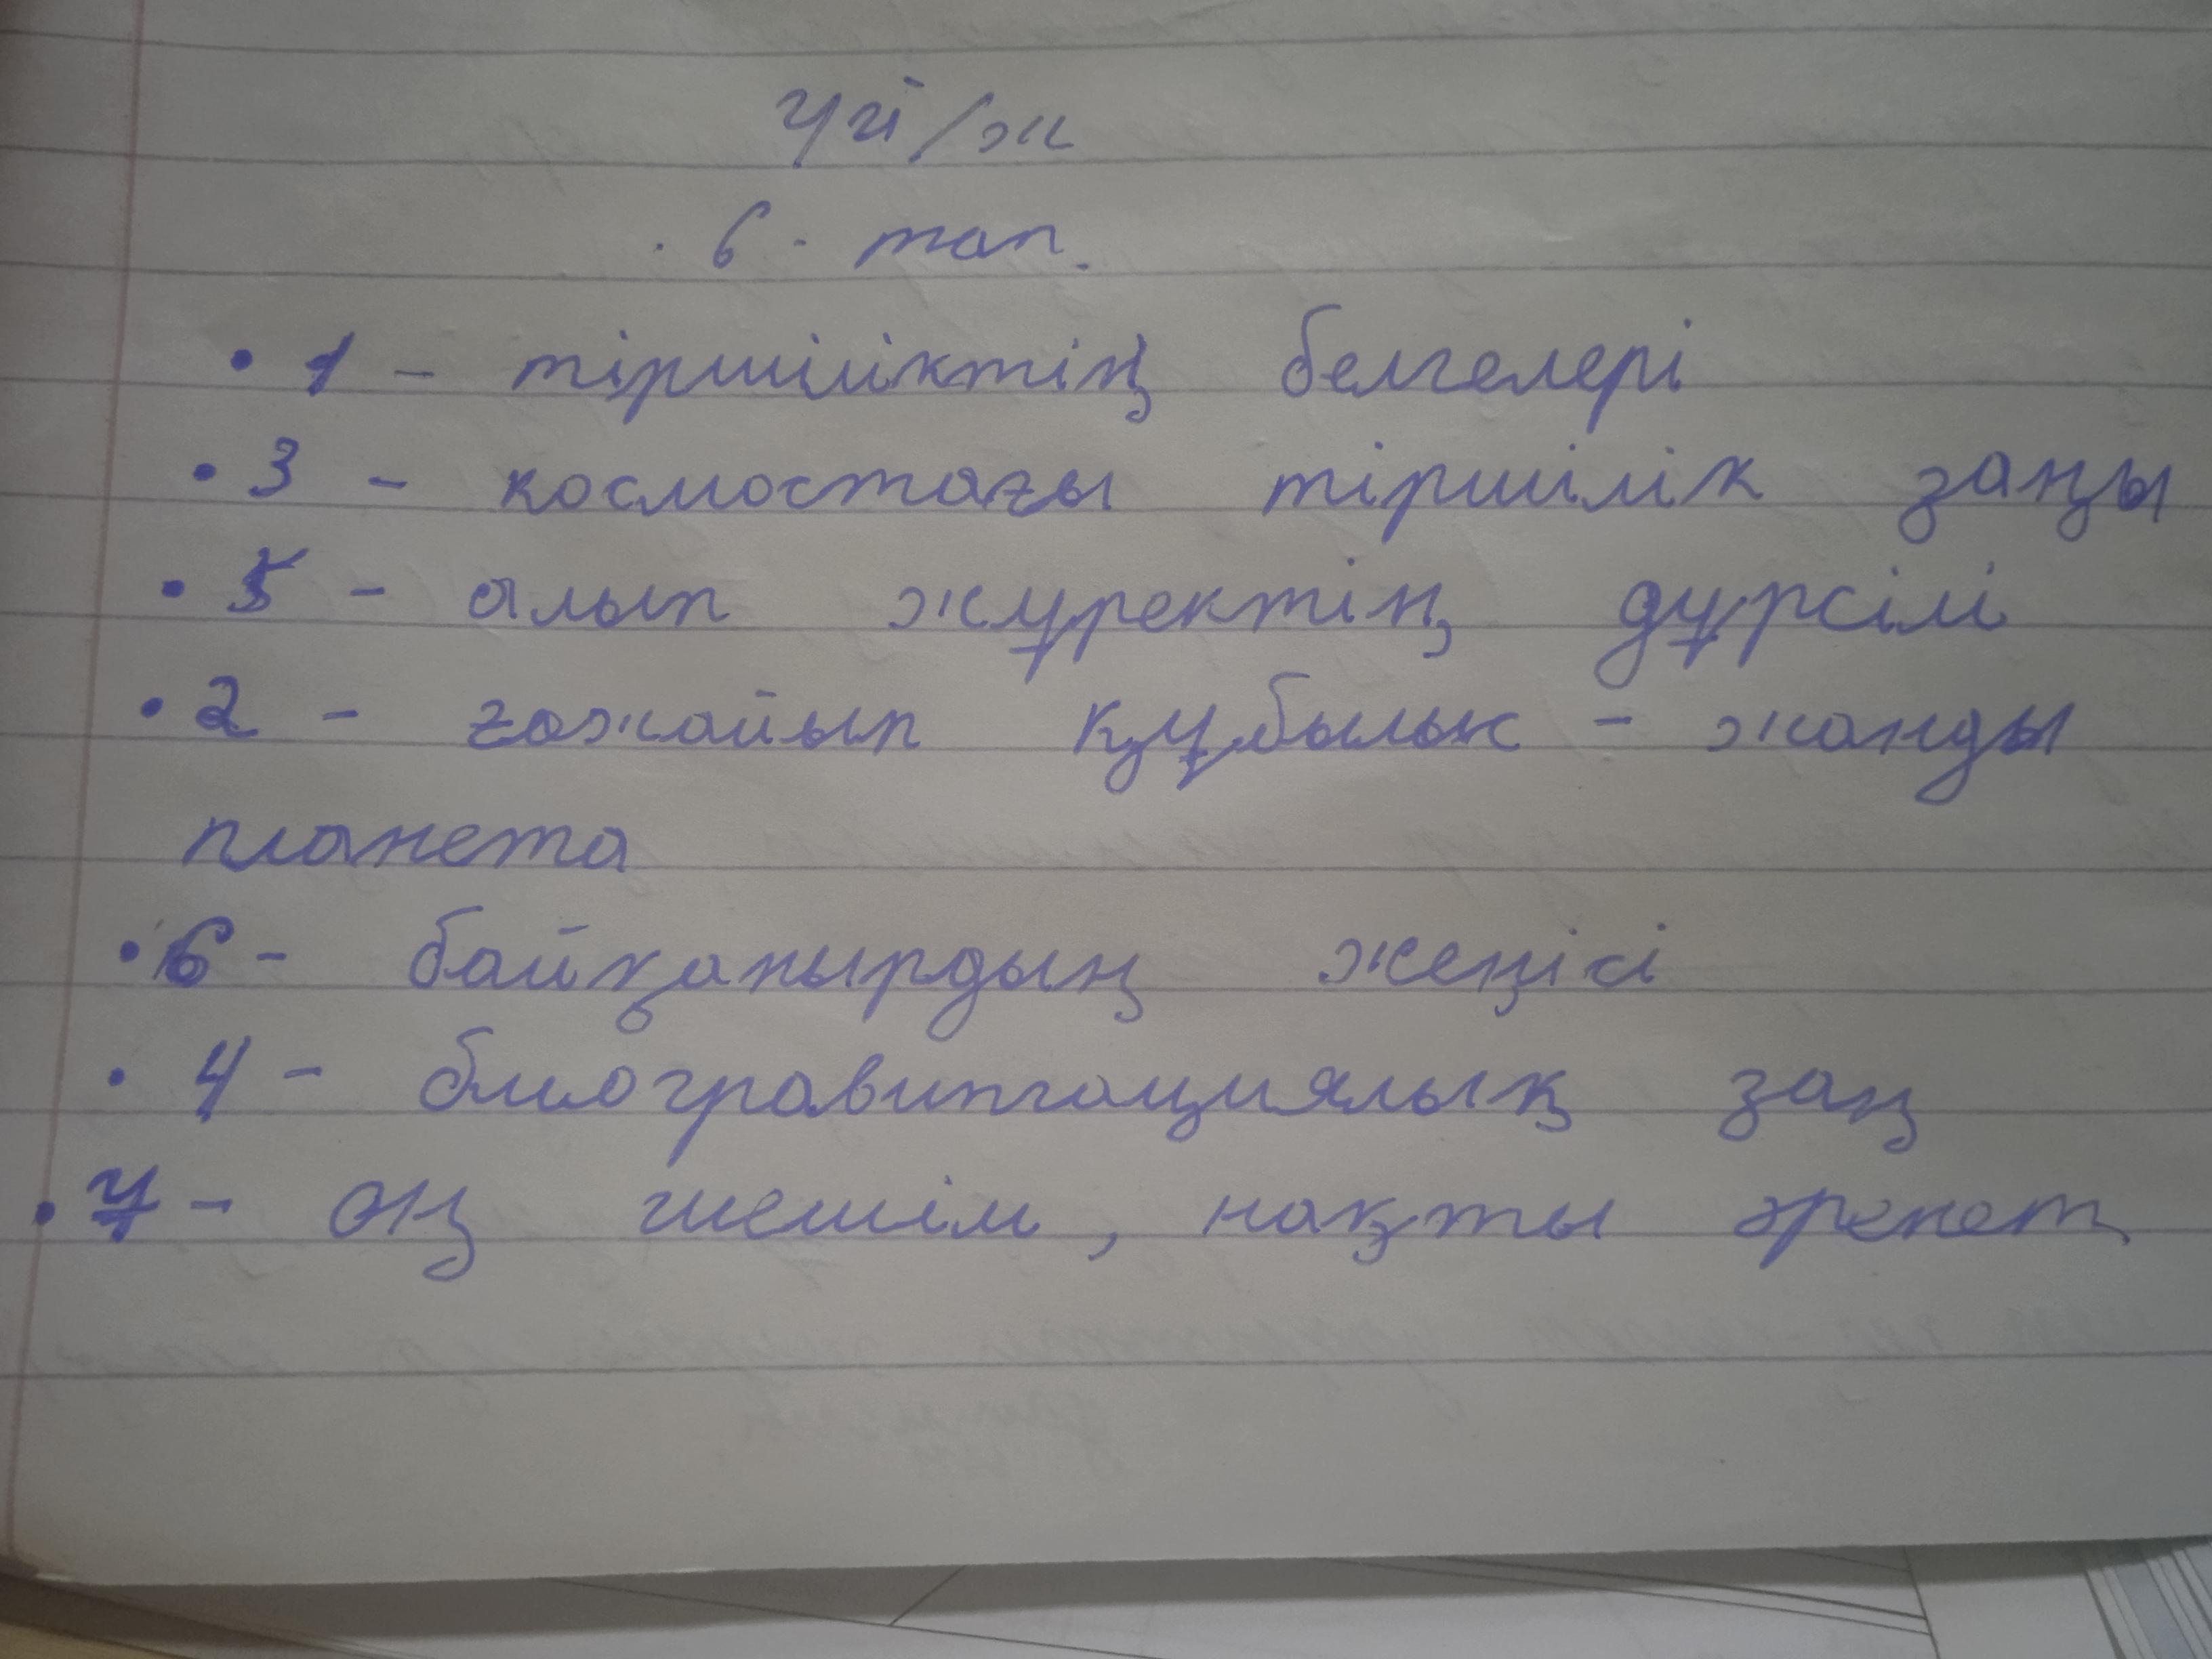 Үй/ж
6 - тап.
• 1 - тіршіліктің белгелері
• 3 - космостағы тіршілік заңы
• 5 - алып жүректің дүрсілі
• 2 - ғажайып құбылық - жанды
планета
• 6 - байқаңырдың жеңісі
• 4 - биогравитациялық заң
• 7 - оң шешім, нақты әрекет